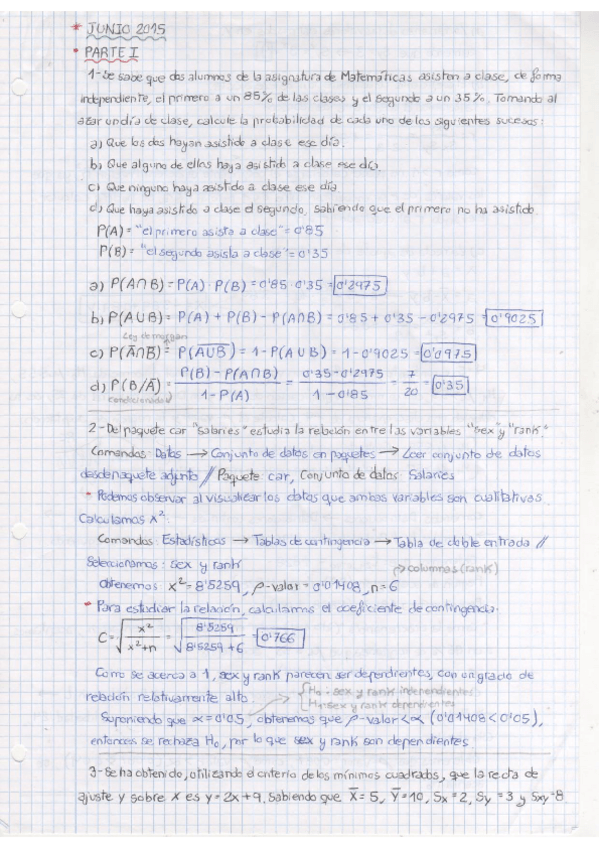 * JUNIO 2015
* PARTE I
1-Se sabe que dos alumnos de la asignatura de Matemáticas asisten a clase, de forma
independiente, el primero a un 85% de las clases y el segundo a un 35%. Tomando al
azar un día de clase, calcule la probabilidad de cada uno de los siguientes sucesos:
a) Que los dos hayan asistido a clase ese día.
b) Que alguno de ellos haya asistido a clase ese día.
c) Que ninguno haya asistido a clase ese día
d) Que haya asistido a clase el segundo, sabiendo que el primero no ha asistido.
P(A) = "el primero asista a clase" = 0'85
P(B) = "el segundo asista a clase" = 0'35
a) P(A∩B) = P(A) · P(B) = 0'85 · 0'35 = 0'2975
b) P(A∪B) = P(A) + P(B) - P(A∩B) = 0'85 + 0'35 - 0'2975 = 0'9025
Ley de morgan
c) P(A̅∩B̅) = P(A̅∪̅B̅) = 1 - P(A∪B) = 1 - 0'9025 = 0'0975
d) P(B/A̅) = P(B) - P(A∩B) / 1 - P(A) = 0'35 - 0'2975 / 1 - 0'85 = 7/20 = 0'35
condicionada
2-Del paquete car "Salaries" estudia la relación entre las variables "sex" y "rank."
Comandos: Datos → Conjunto de datos en paquetes → Leer conjunto de datos
desde paquete adjunto // Paquete car, Conjunto de datos Salaries
* Podemos observar al visualizar los datos que ambas variables son cualitativas
Calculamos x²:
Comandos: Estadísticos → Tablas de contingencia → Tabla de doble entrada //
Seleccionamos: sex y rank → columnas (rank)
Obtenemos x² = 8'5259, p-valor = 0'01408, n = 6
* Para estudiar la relación, calculamos el coeficiente de contingencia:
C = √(x² / x²+n) = √(8'5259 / 8'5259 + 6) = 0'766
Como se acerca a 1, sex y rank parecen ser dependientes, con un grado de
relación relativamente alto.
H₀: sex y rank independientes
H₁: sex y rank dependientes
Suponiendo que α = 0'05, obtenemos que p-valor < α (0'01408 < 0'05),
entonces se rechaza H₀, por lo que sex y rank son dependientes
3-Se ha obtenido, utilizando el criterio de los mínimos cuadrados, que la recta de
ajuste y sobre x es y = 2x + 9. Sabiendo que X̅ = 5, Y̅ = 10, Sx = 2, Sy = 3 y Sxy = 8